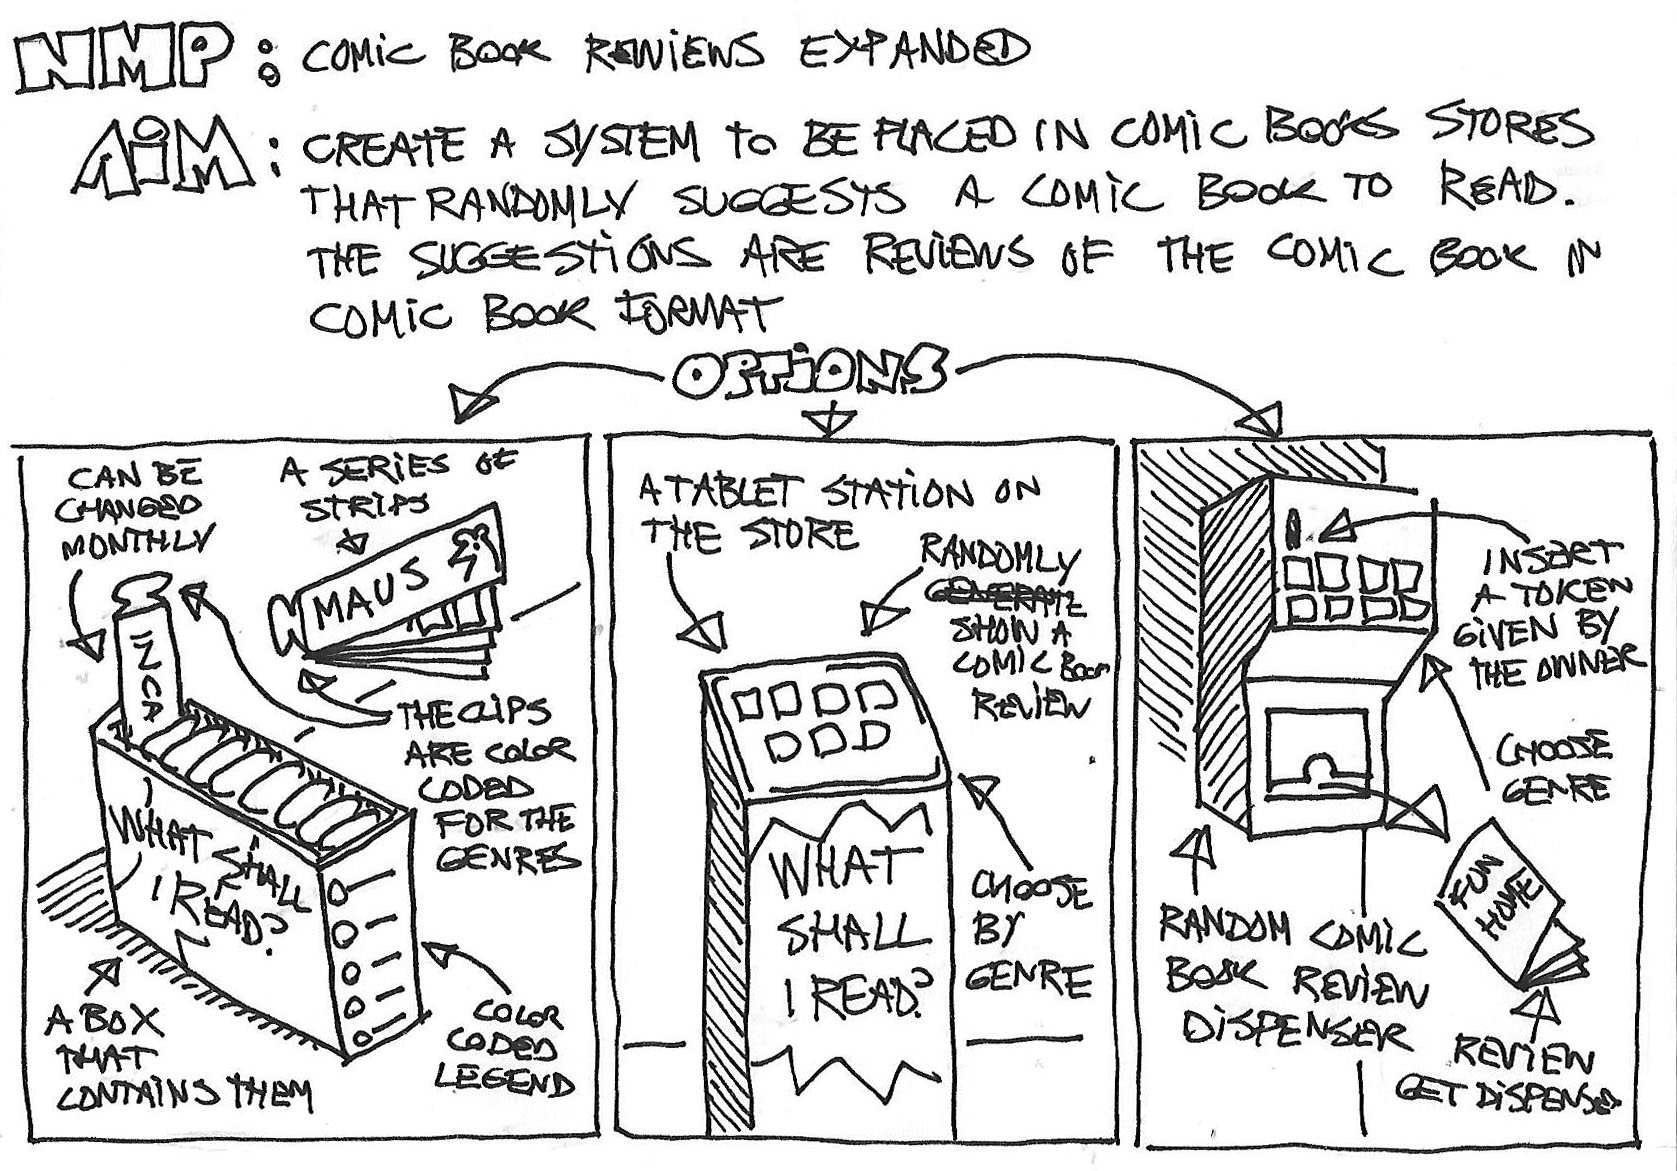 NMP: COMIC BOOK REWIEWS EXPANDED
AIM: CREATE A SYSTEM TO BE PLACED IN COMIC BOOKS STORES
THAT RANDOMLY SUGGESTS A COMIC BOOK TO READ.
THE SUGGESTIONS ARE REVIEWS OF THE COMIC BOOK IN
COMIC BOOK FORMAT
OPTIONS
CAN BE
CHANGED
MONTHLY
A SERIES OF
STRIPS
MAUS
THE CLIPS
ARE COLOR
CODED
FOR THE
GENRES
WHAT
SHALL
I READ?
A BOX
THAT
CONTAINS THEM
COLOR
CODED
LEGEND
A TABLET STATION ON
THE STORE
RANDOMLY
GENERATE
SHOW A
COMIC BOOK
REVIEW
WHAT
SHALL
I READ?
CHOOSE
BY
GENRE
INSERT
A TOKEN
GIVEN BY
THE OWNER
CHOOSE
GENRE
FUN
HOME
RANDOM COMIC
BOOK REVIEW
DISPENSER
REVIEW
GET DISPENSED